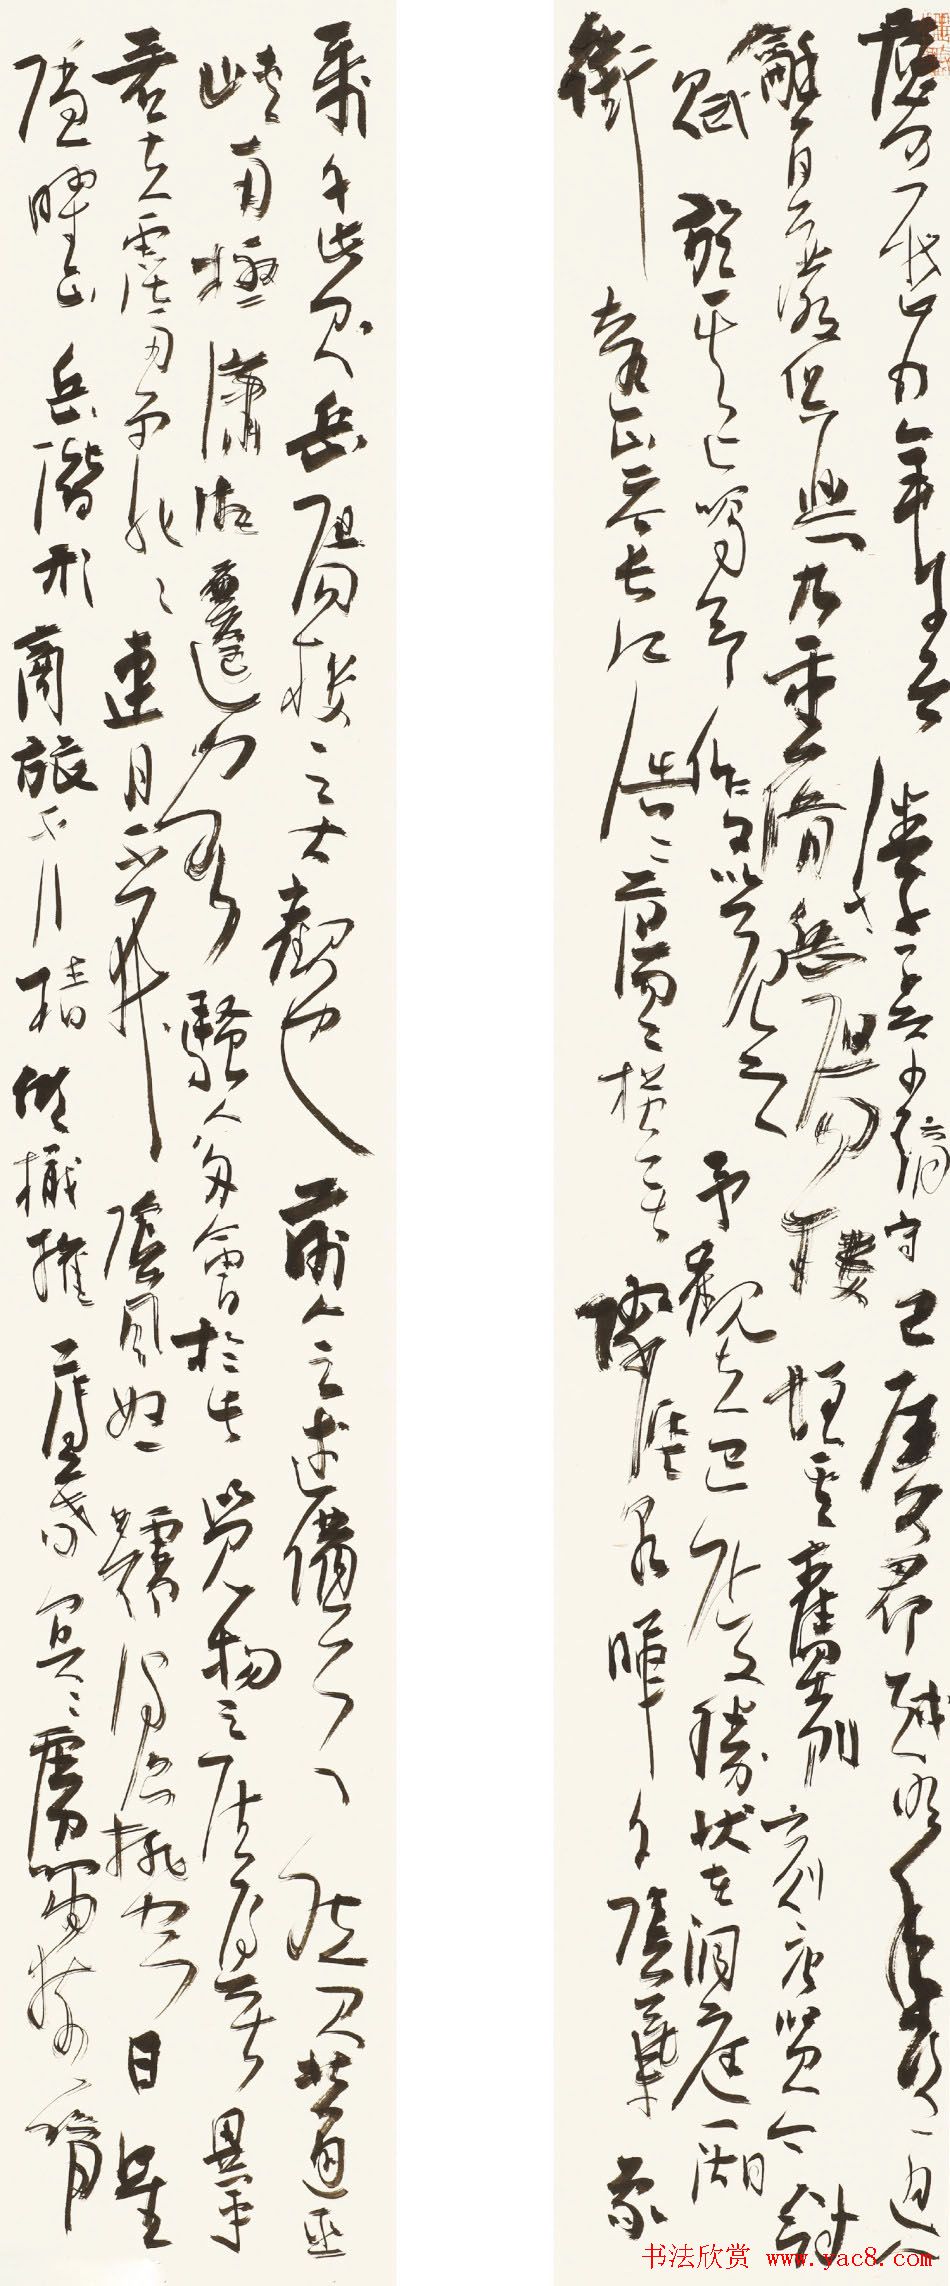 慶曆四年春滕子京謫守巴陵郡越明年政通人
龢百廢俱興乃重脩岳陽樓增其舊制刻唐賢今詩
賦於其上囑予作文以記之予觀夫巴陵勝狀在洞庭一湖
銜遠山吞長江浩浩蕩蕩橫無際涯朝暉夕陰氣象
萬千此則岳陽樓之大觀也前人之述備矣然則北通巫
峽南極瀟湘遷客騷人多會於此覽物之情得無異乎
若夫霪雨霏霏連月不開陰風怒號濁浪排空日星
隱曜山岳潛形商旅不行檣傾楫摧薄暮冥冥虎嘯猿啼
书法欣赏 www.yac8.com